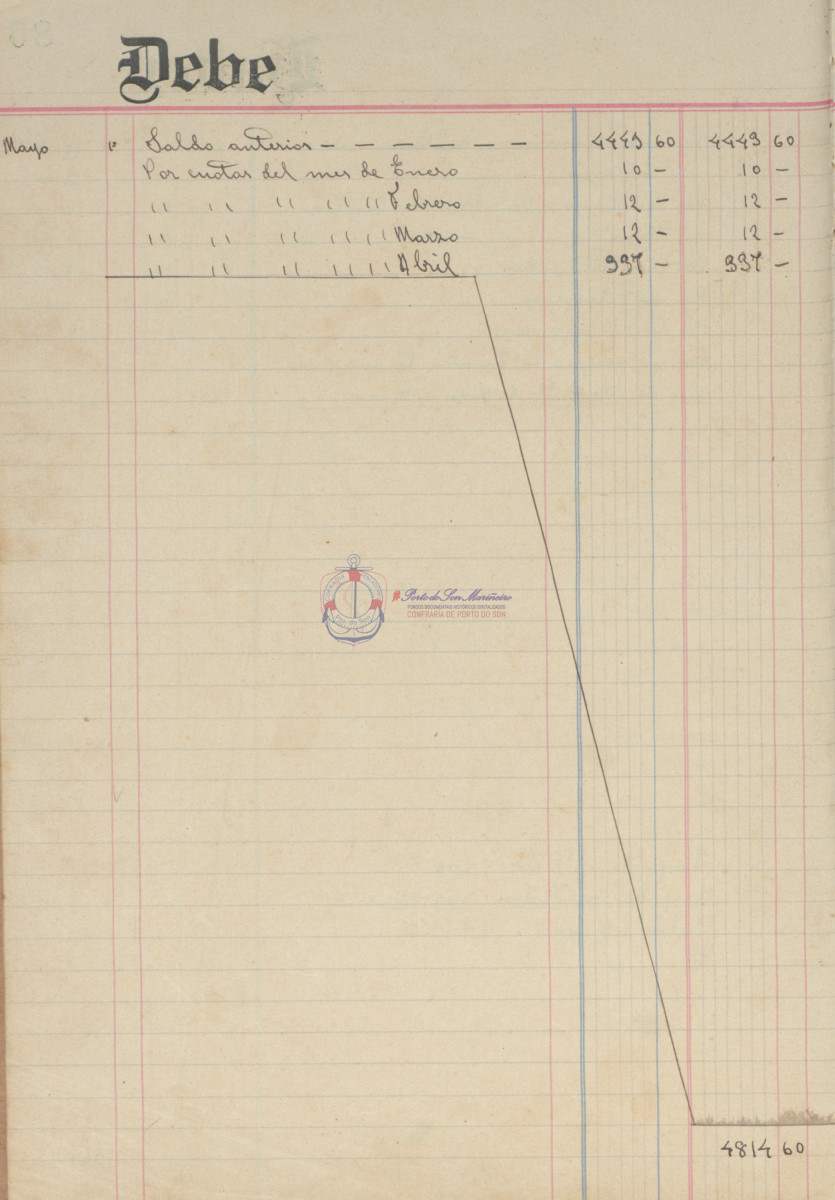 Debe
Mayo 1º Saldo anterior — — — — — — 4443 60 4443 60
Por cuotas del mes de Enero 10 — 10 —
" " " " " Febrero 12 — 12 —
" " " " " Marzo 12 — 12 —
" " " " " Abril 337 — 337 —
Porto do Son Mariñeiro
FONDOS DOCUMENTAIS HISTÓRICOS DIXITALIZADOS
CONFRARÍA DE PORTO DO SON
Porto do Son
4814 60